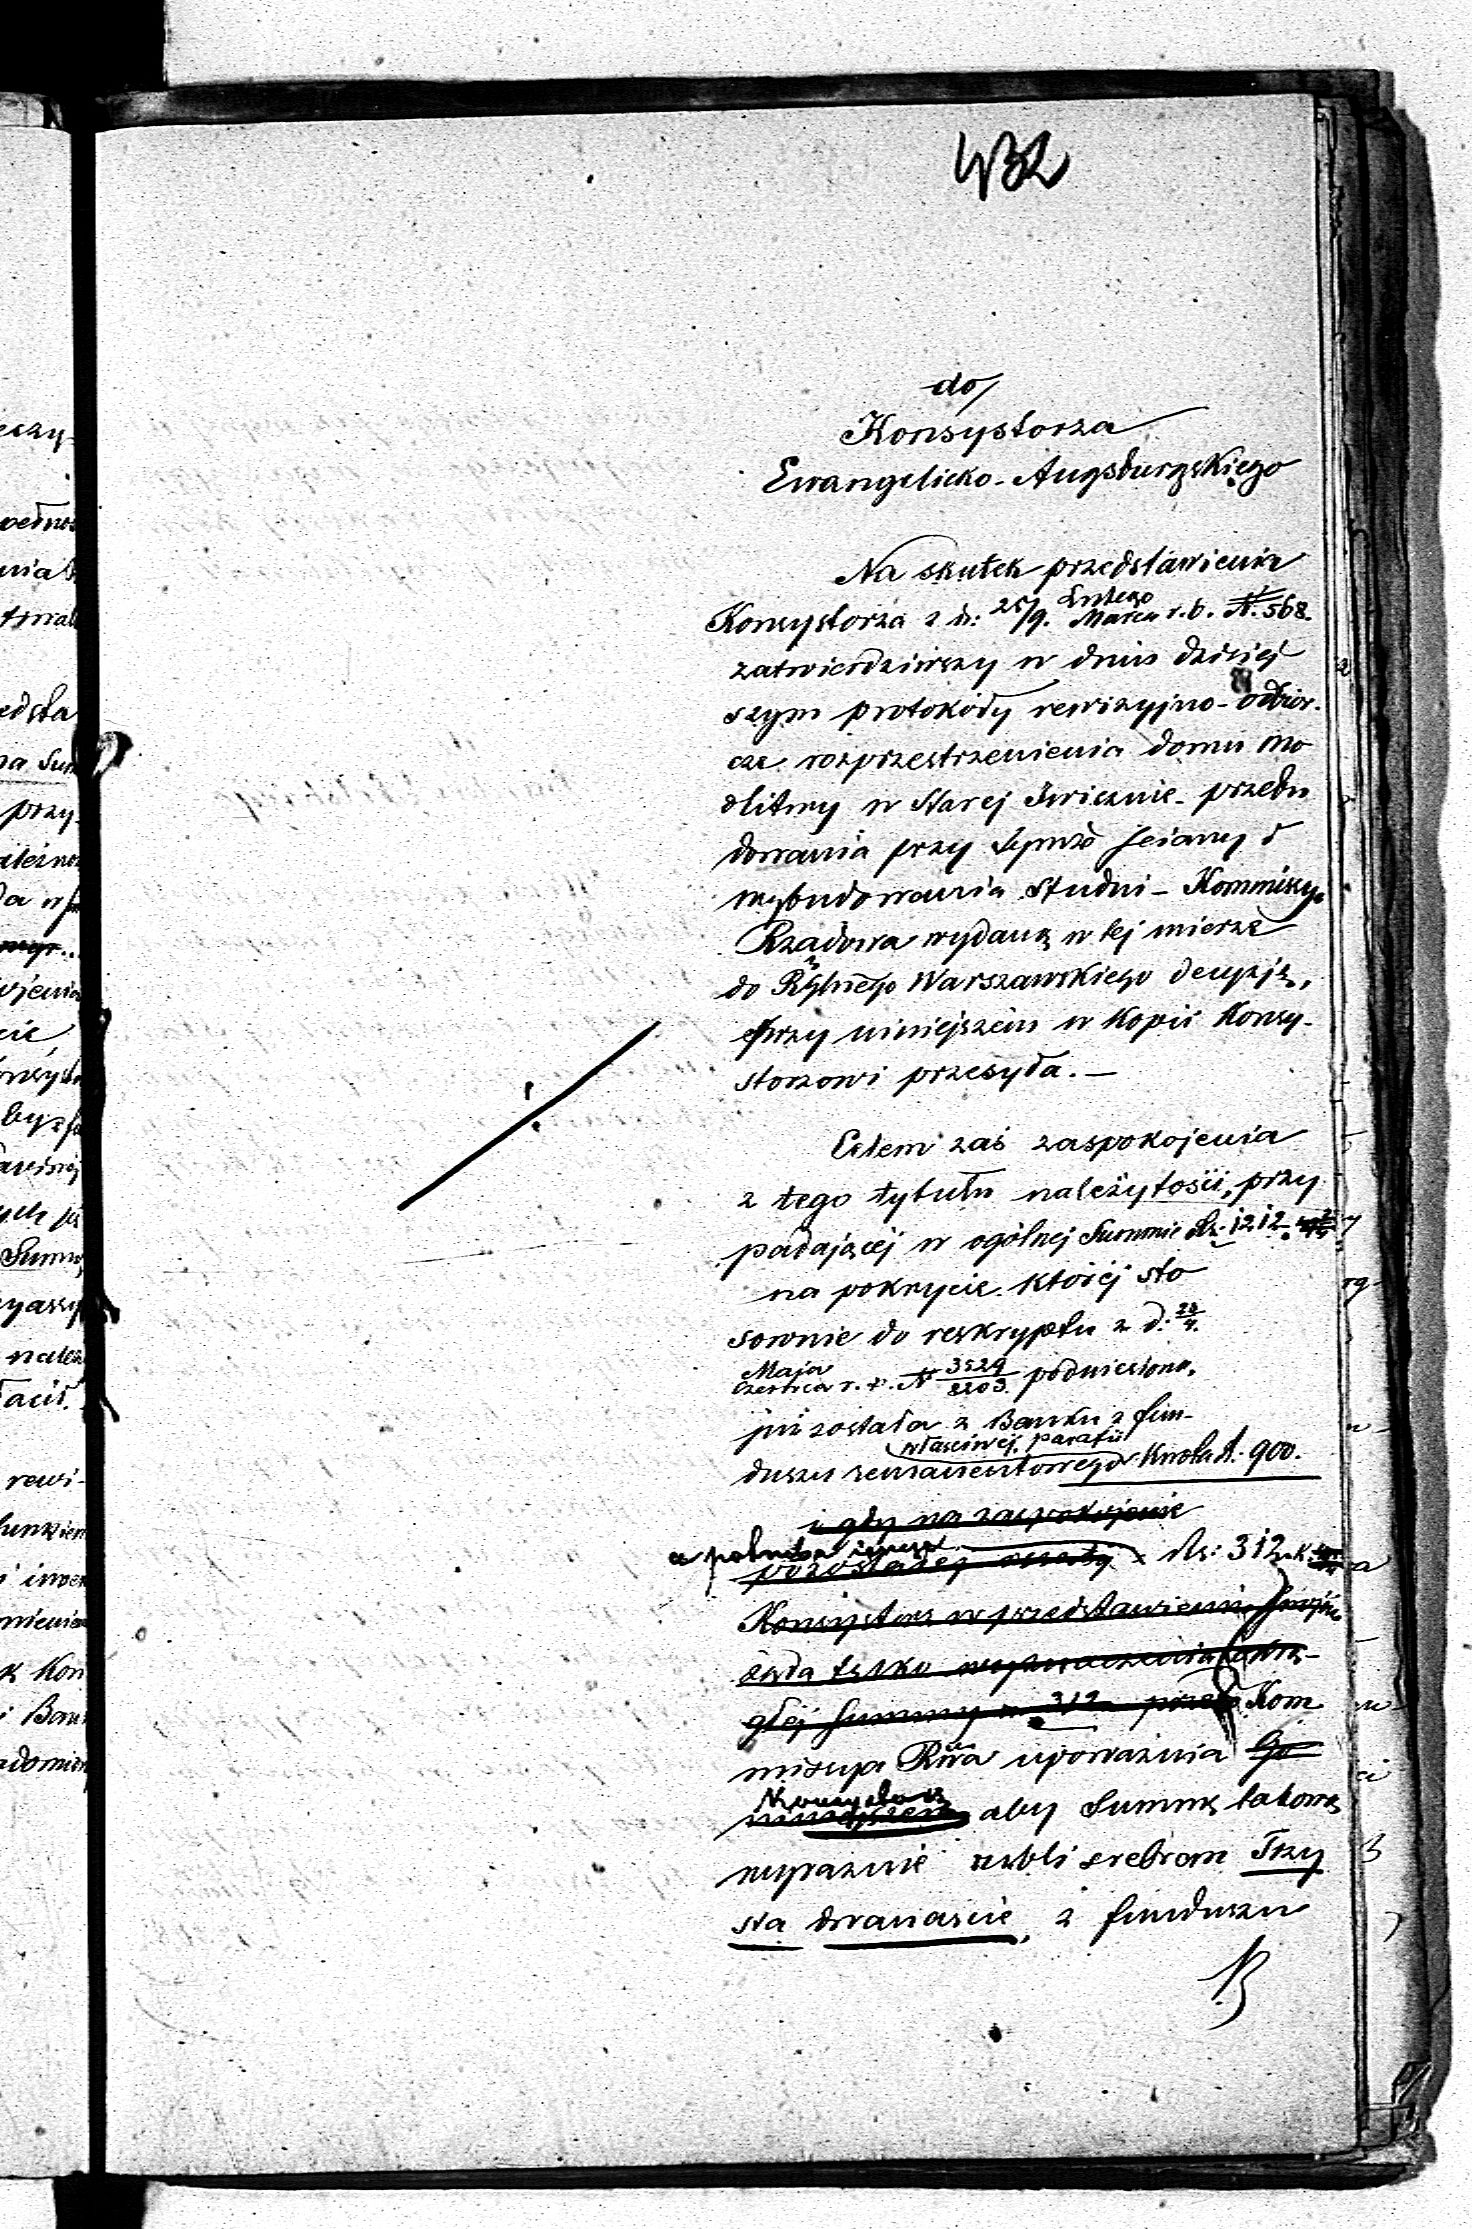 432
do
Konsystorza
Ewangelicko-Augsburgskiego
Na skutek przedstawienia
Konsystorza z d: 25/9. Lutego Marca r. b. N. 568.
zatwierdziwszy w dniu dzisiej
szym protokóły rewizyjno-odbior.
cze rozprzestrzenienia domu mo
dlitwy w Starej Iwicznie przebu
dowania przy Symże ściany i
wybudowania studni - Kommissya
Rządowa wydaną w tej mierze
do Rządu Gubernialnego Warszawskiego decyzją,
przy niniejszem w kopii Konsy-
storzowi przesyła. —
Celem zaś zaspokojenia
z tego tytułu należytości, przy
padającej w ogólnej Summie Rs. 1212.
na pokrycie której sto
sownie do reskryptu z d. 23/4.
Maja Czerwca r. z. N 3529/8203 podniesiona,
już została z Banku z fun-
właściwej parafii
duszu remanentowego Kwota rs. 900.
i gdy na zaspokojenie
a potrzeba jeszcze
pozostałej reszty Rs: 312. k.
Konsystorz w przedstawieniu swojém
żąda tylko wyznaczenia okrą-
głej Summy rs. 312 przeto Kom
missya Rwa upoważnia Go
Konsystorz
niniejszem aby Summę takową
wyraźnie rubli srebrem Trzy
sta dwanaście, z funduszu